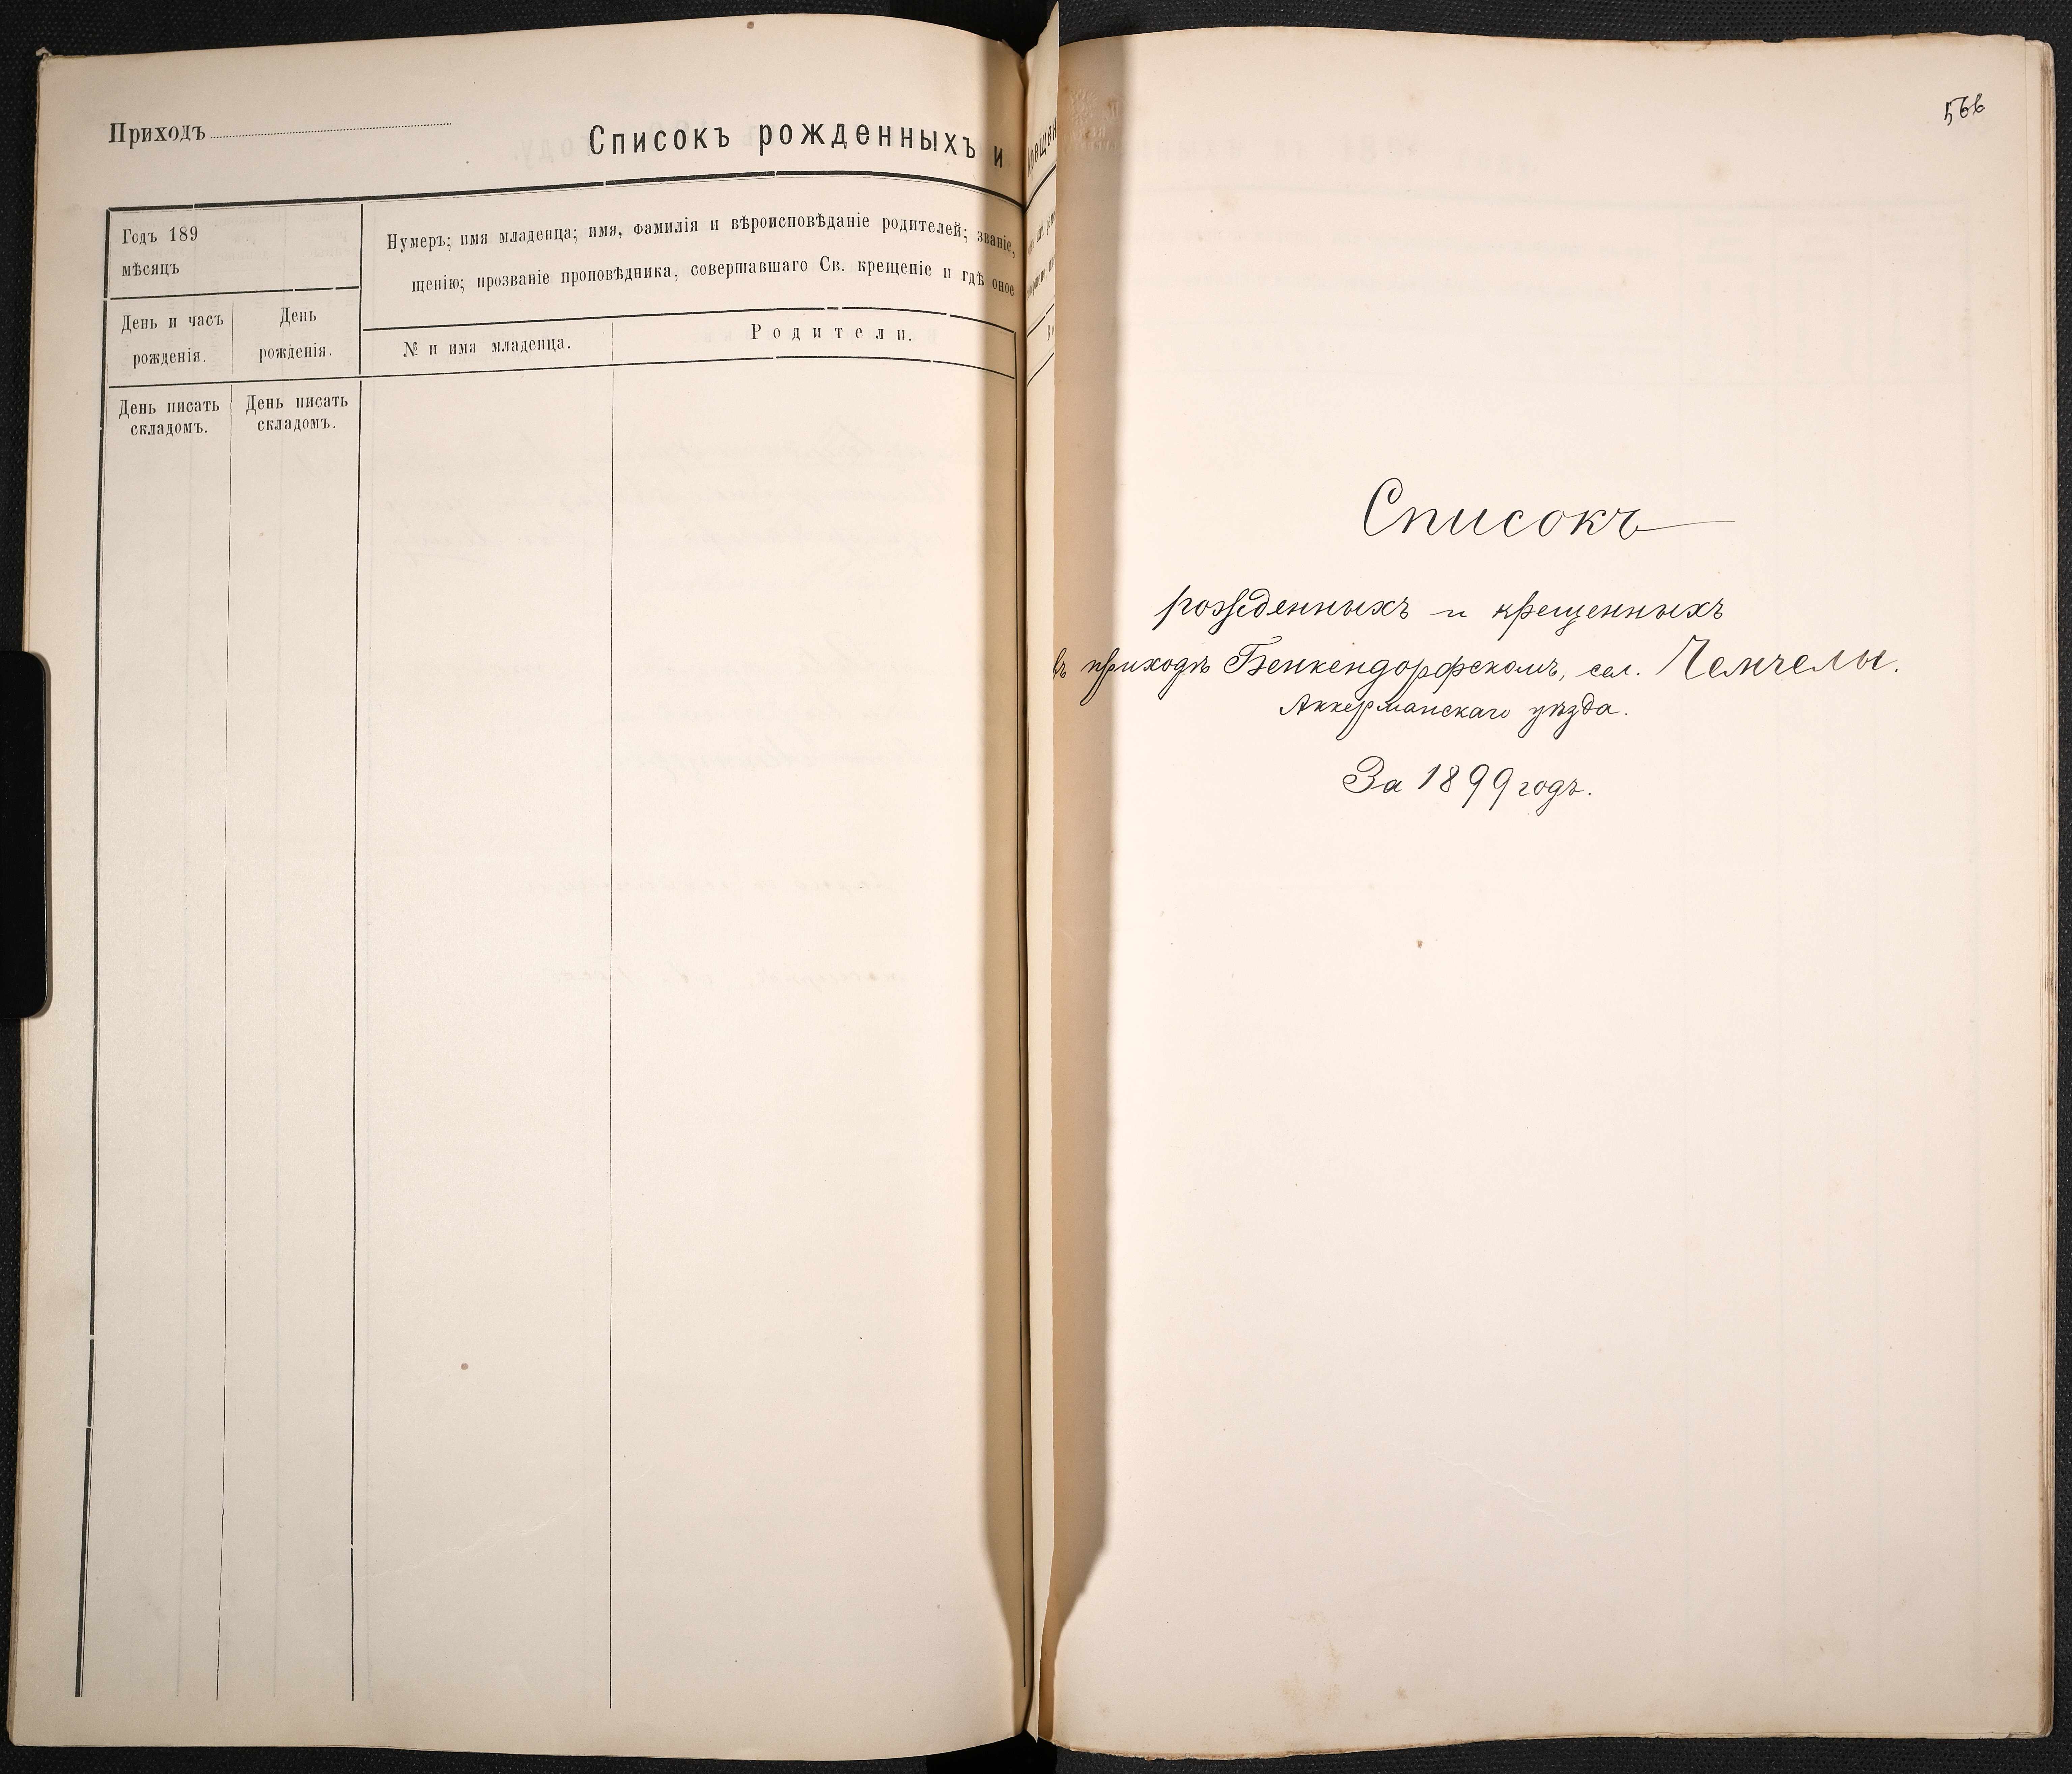 Приходъ
Списокъ рожденныхъ и
Годъ 189
мѣсяцъ
Нумеръ; имя младенца; имя, фамилія и вѣроисповѣданіе родителей; званіе,
щенію; прозваніе проповѣдника, совершавшаго Св. крещеніе и гдѣ оное
День и часъ
рожденія.
День
рожденія.
№ и имя младенца.
Родители.
День писать
складомъ.
День писать
складомъ.
566
Списокъ
рожденныхъ и крещенныхъ
въ приходѣ Бенкендорфскомъ, сел. Чемчелы.
Аккерманскаго уѣзда.
За 1899 годъ.